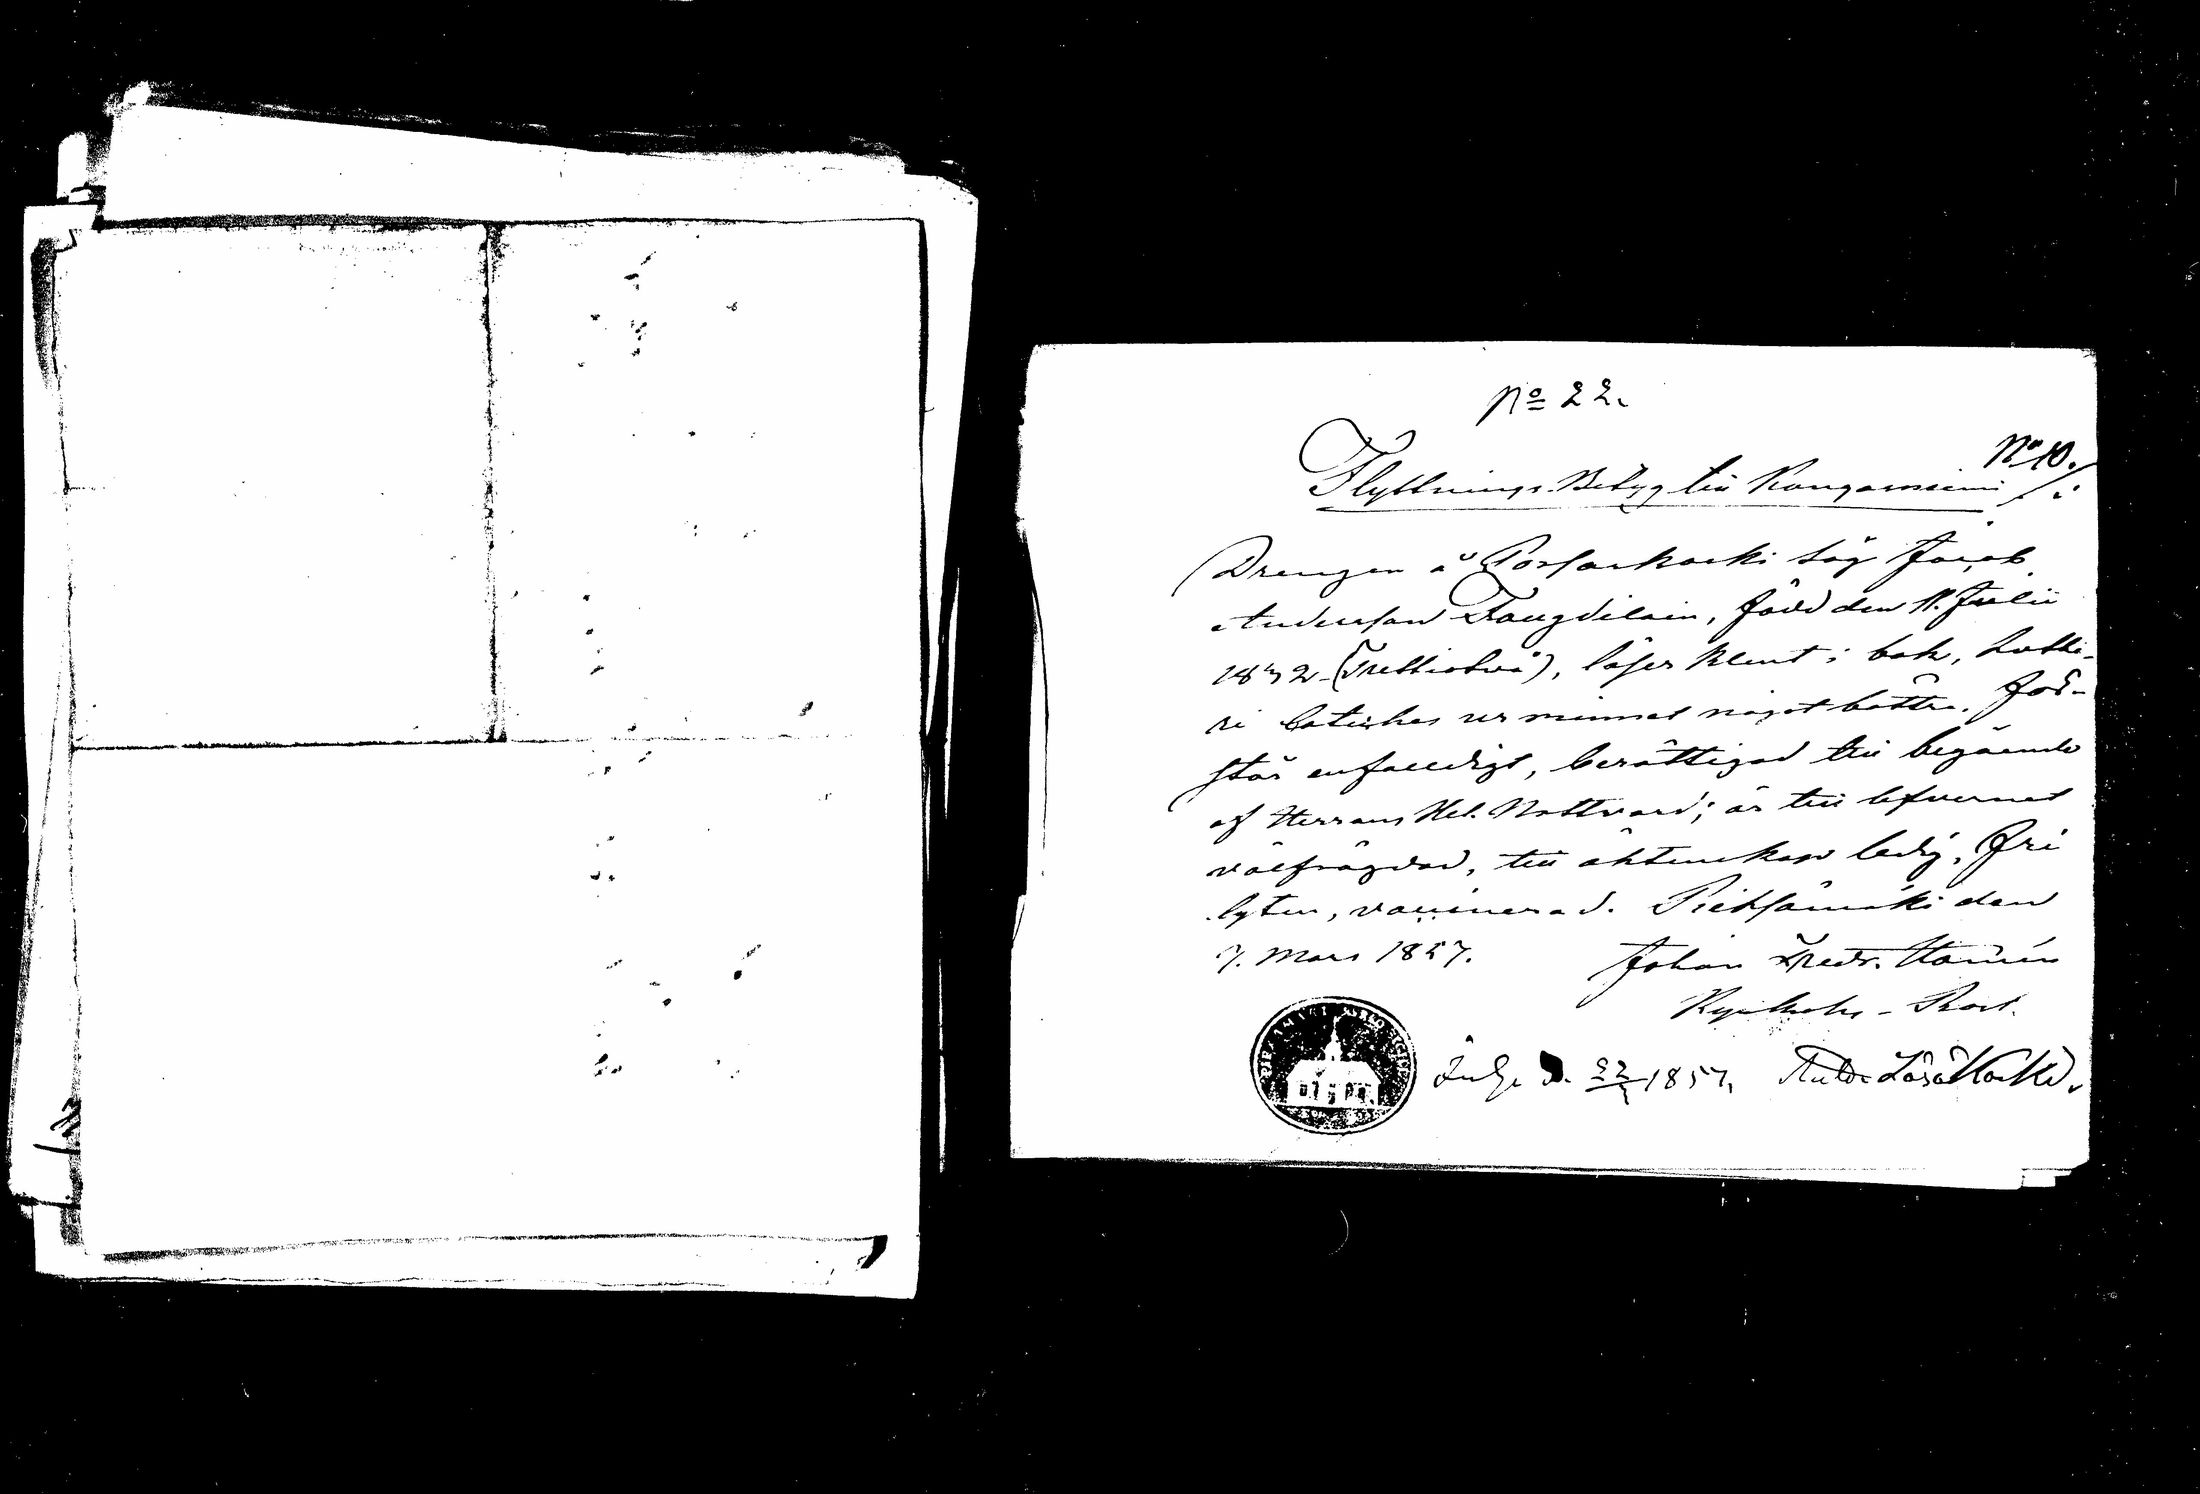 No 22.
No 10.
Flyttnings-Betyg till Kangasniemi
Drengen å Porsaskoski säg Jacob
Andersson Taugdilain, född den 11. Julii
1832 (Trettiotvå), läser klent i bok, Lutte-
ri Cateches ur minnet något bättre. För-
står enfaldigt, berättigad till begående
af Herrans Hel. Nattvard; är till lefvernet
välfrägdad, till äktenskap ledig, fri
lyten, vaccinerad. Pieksämäki den
7. Mars 1857. Johan Fredr.
Kyrkoh. - Past.
d. 22 1857.